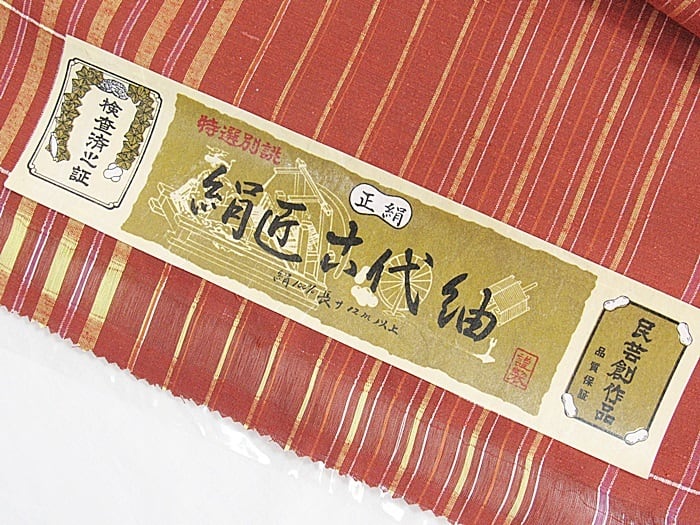 検査済之証
特選別誂
正絹
絹匠古代紬
絹100% 長サ12m以上
謹製
民芸創作品
品質保証